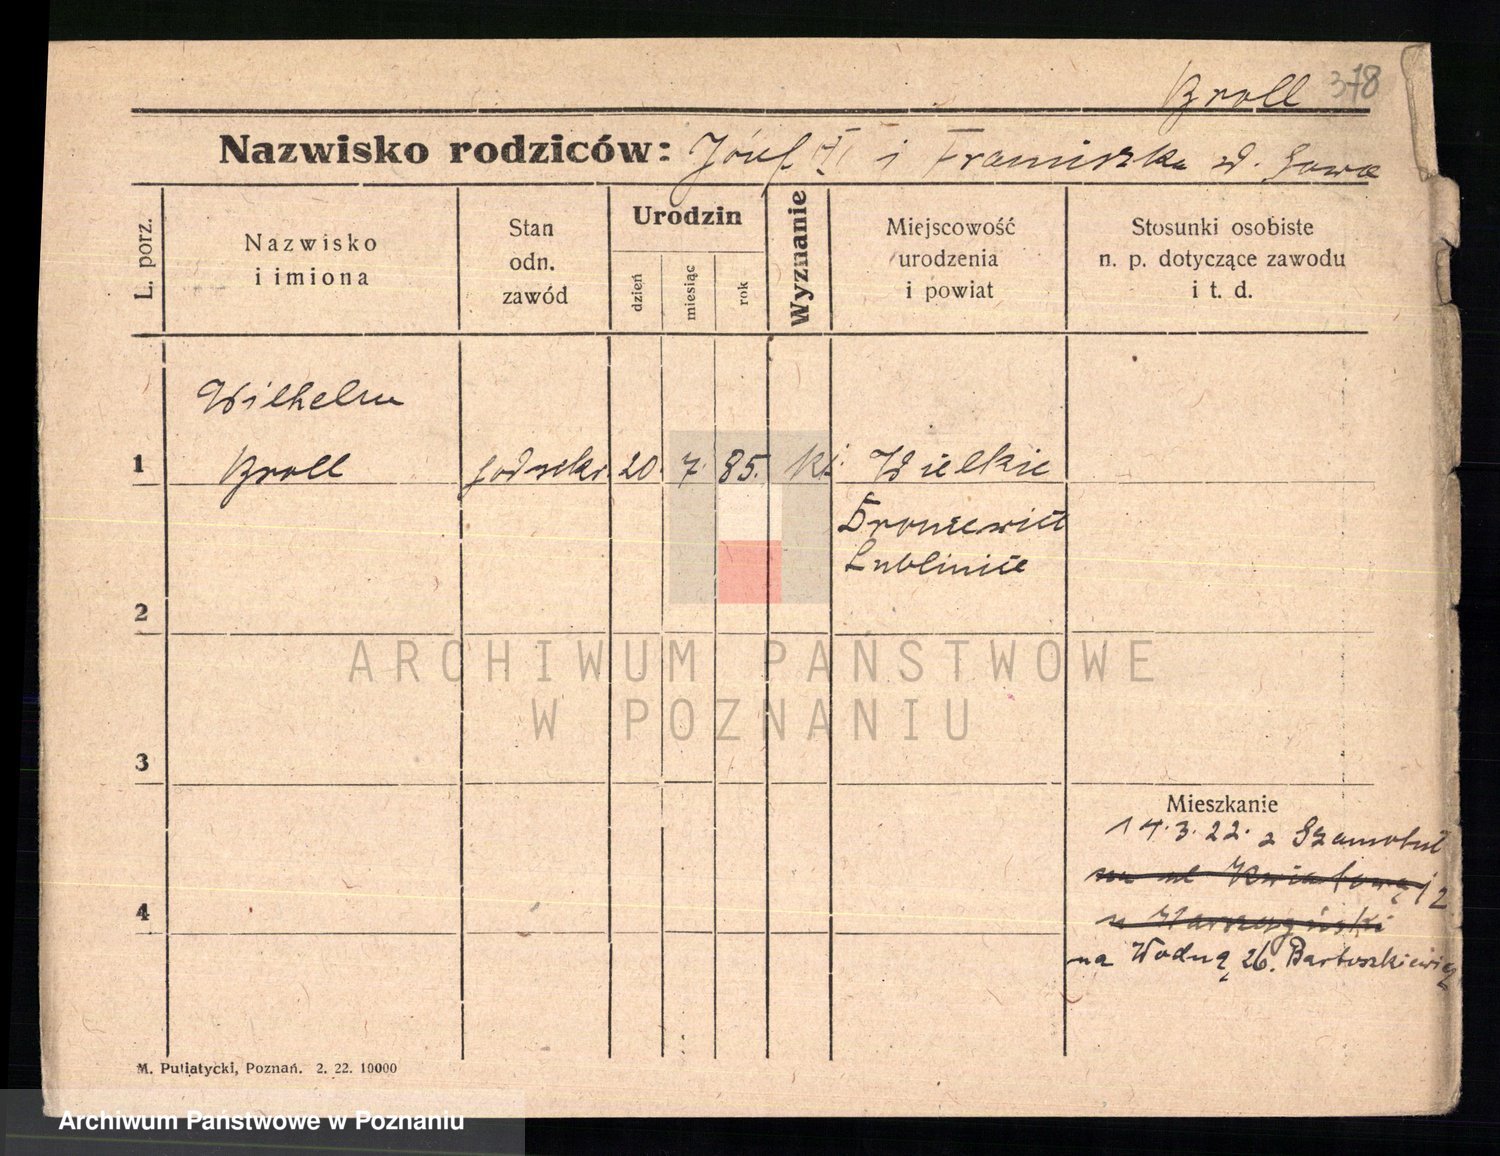 Broll 378
Nazwisko rodziców: Józef i Franciszka
L. porz.
Nazwisko
i imiona
Stan
odn.
zawód
Urodzin
dzień
miesiąc
rok
Wyznanie
Miejscowość
urodzenia
i powiat
Stosunki osobiste
n. p. dotyczące zawodu
i t. d.
Wilhelm
1 Broll 20. 7. 85. kt. Wielkie
Droniewice
Lublinice
2
3
4
Mieszkanie
14.3.22. z Szamotuł
na ul Kwiatową 12
na Wodną 26. Bartoszkiewicz
M. Putiatycki, Poznań. 2. 22. 10000
ARCHIWUM PAŃSTWOWE
W POZNANIU
Archiwum Państwowe w Poznaniu